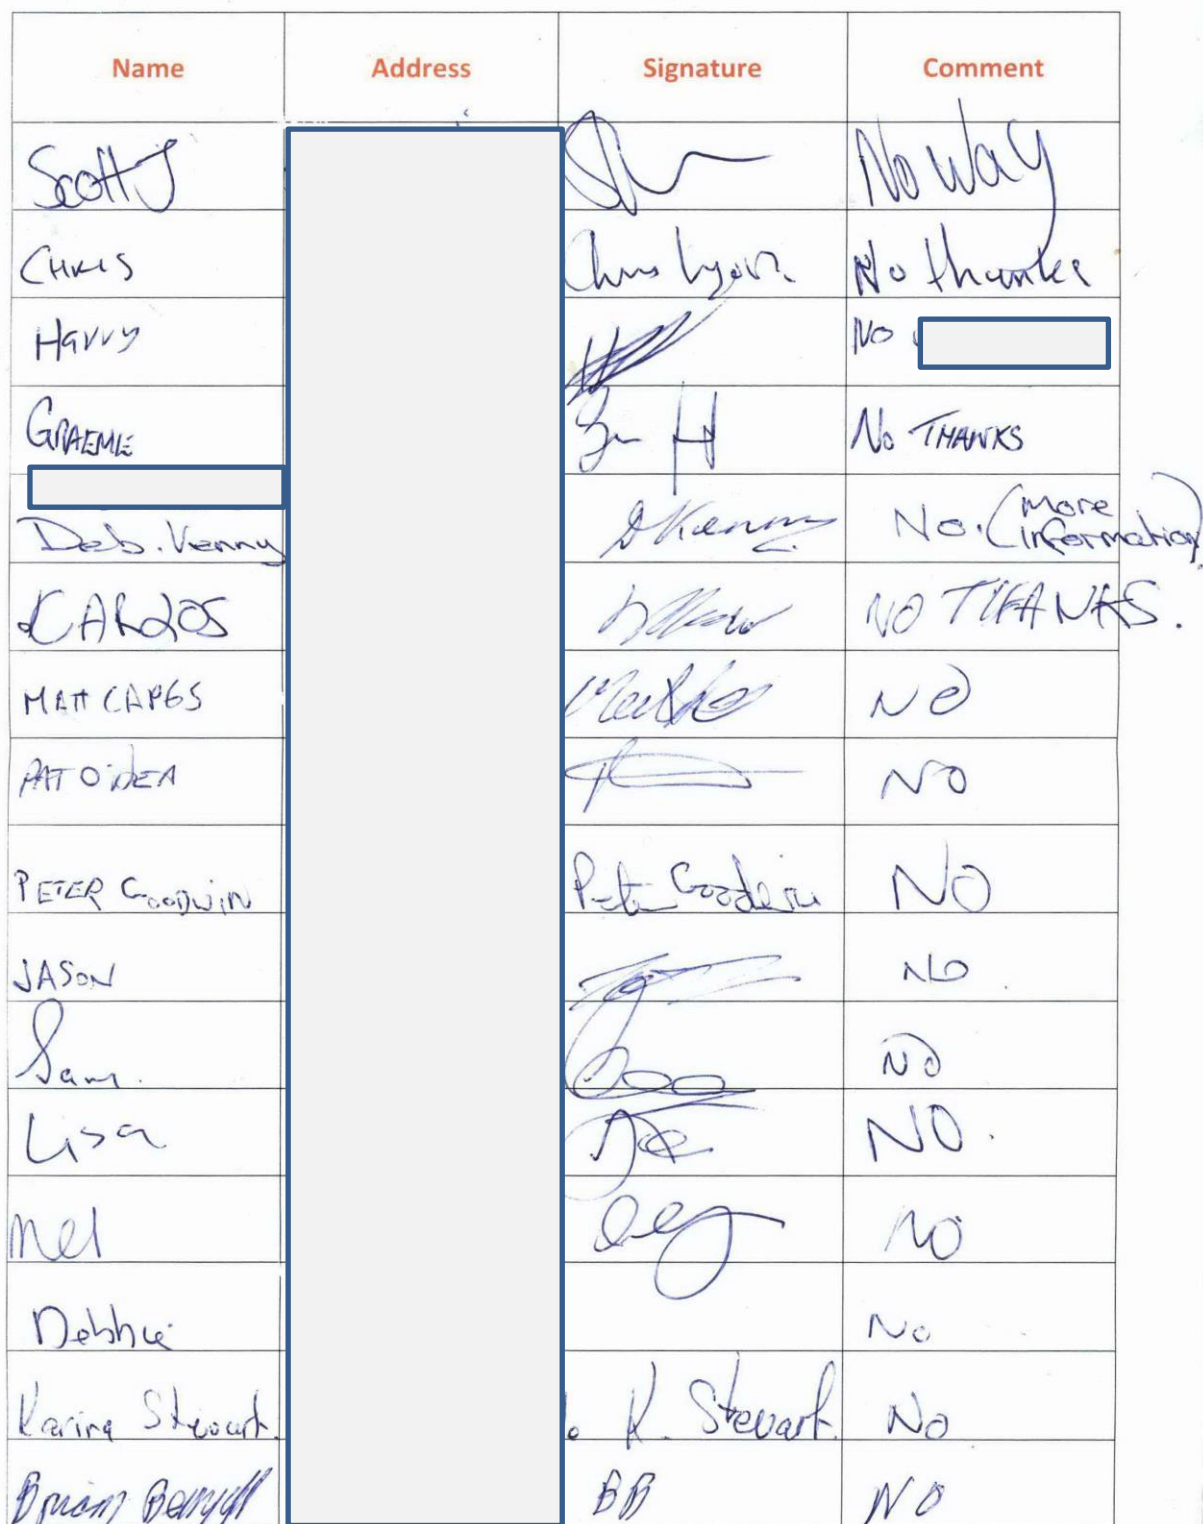 Name Address Signature Comment
Scott J No Way
CHRIS Chris Lyons No thanks
Harry NO
GRAEME No THANKS
Deb. Kenny DKenny No. (more information)
CARLOS NO THANKS.
MATT CAPES NO
PAT O'DEA NO
PETER GOODWIN Peter Goodwin NO
JASON NO
Sam. NO
Lisa NO.
Mel NO
Debbie No
Karina Stewart. K. Stewart. No
Brian BB NO